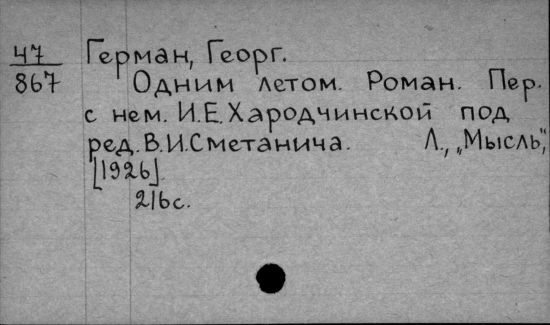 47
867
Герман, Георг.
Одним летом. Роман. Пер.
с нем. И.Е. Хародчинской под
ред. В.И. Сметанича. Л., „Мысль,"
[1926].
216с.